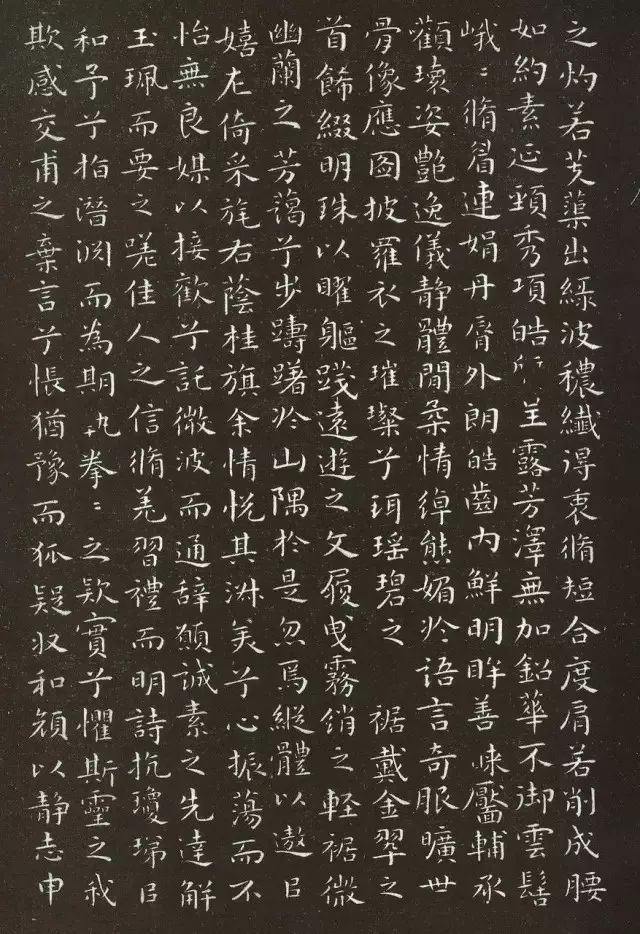 之灼若芙蕖出綠波穠纖得衷脩短合度肩若削成腰
如約素延頸秀項皓呈露芳澤無加鉛華不御雲髻
峨〻脩眉連娟丹脣外朗皓齒內鮮明眸善睞靨輔承
顴瓌姿艷逸儀靜體閒柔情綽態媚於語言奇服曠世
骨像應圖披羅衣之璀璨兮珥瑤碧之 裾戴金翠之
首飾綴明珠以曜軀踐遠遊之文履曳霧綃之輕裾微
幽蘭之芳藹兮步躊躇於山隅於是忽焉縱體以遨以
嬉左倚采旄右蔭桂旗余情悅其淑美兮心振蕩而不
怡無良媒以接歡兮託微波而通辭願誠素之先達解
玉珮而要之嗟佳人之信脩羌習禮而明詩抗瓊珶以
和予兮指潛淵而為期執拳〻之欵實兮懼斯靈之我
欺感交甫之棄言兮悵猶豫而狐疑收和顏以靜志申